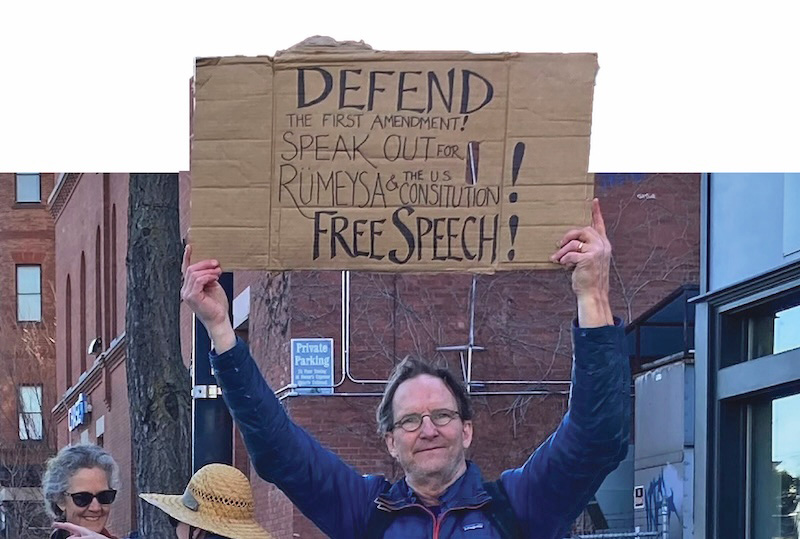 DEFEND
THE FIRST AMENDMENT!
SPEAK OUT FOR
RÜMEYSA & THE U.S
CONSITUTION!
FREE SPEECH!
Private
Parking